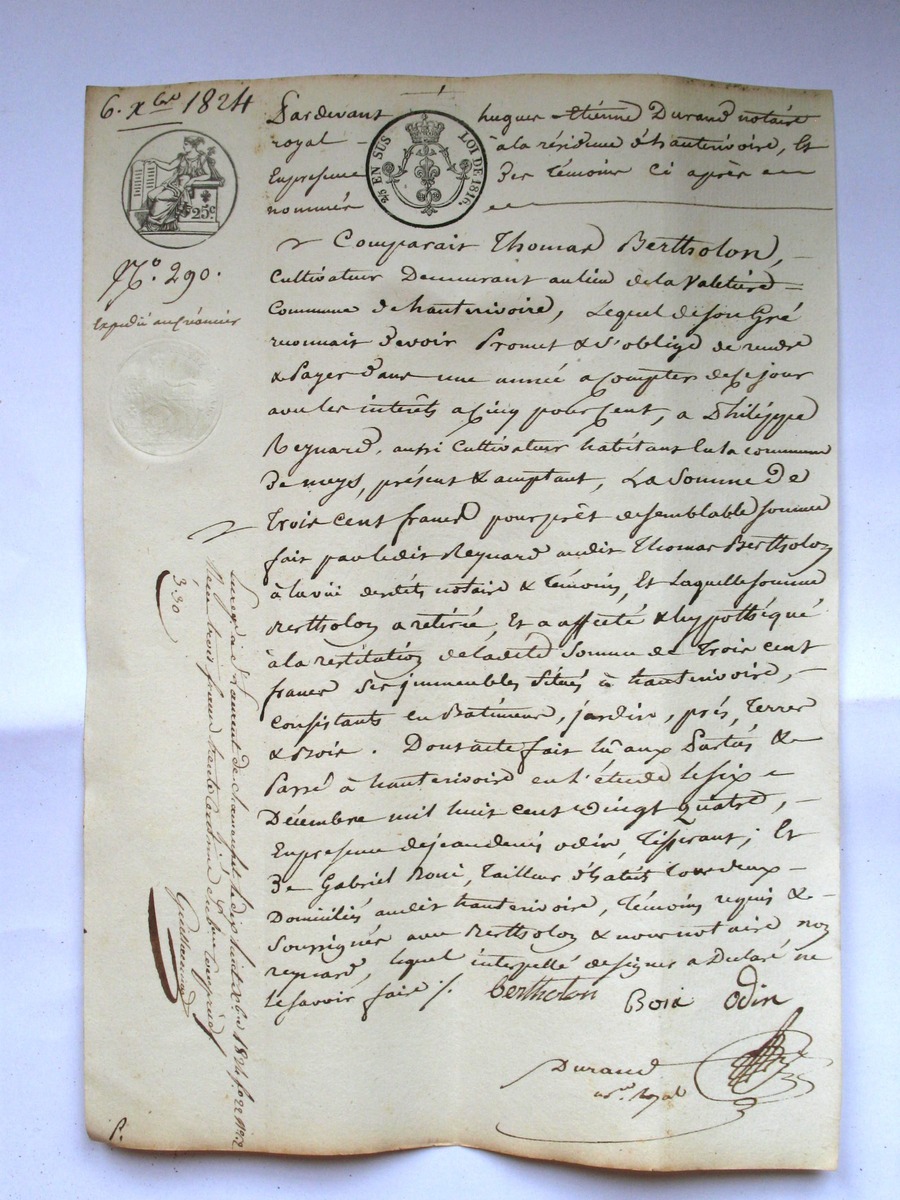 6. xbre 1824
25c
No. 290.
Expédié au Créancier
2/5 EN SUS LOI DE 1816.
Pardevant hugues etienne Durand notaire
royal à la résidence d'hauterivoire, Et
En presence Des Témoins Ci après
nommés
Comparait Thomas Bertholon,
Cultivateur Demeurant au lieu de la Valetière
Commune d'hauterivoire, Lequel de son Gré
reconnait devoir Promet & s'oblige de rendre
& Payer dans une année a compter de ce jour
avec les interêts a cinq pour cent, a Philippe
Reynard, aussi Cultivateur habitant en la commune
De meys, présent & acceptant, La Somme De
Trois cent francs pour prêt de semblable somme
fait par ledit Reynard audit Thomas Bertholon
à la vue desdits notaire & Témoins, Et laquelle somme
Bertholon a retirée, Et a affecté & hypothéqué
à la restitution de ladite Somme de Trois cent
francs ses immeubles Situés à hauterivoire,
Consistants en Batiments, jardin, prés, Terres
& Bois. Dont acte fait lu aux Parties &
Passé à hauterivoire en l'étude le six
Décembre mil huit cent vingt quatre,
En presence de jean denis odin, Tisserant; Et
De Gabriel Boui, Tailleur d'habits Tous deux
Domiciliés audit hauterivoire, Témoins requis &
Soussignés avec Bertholon & nous notaire non
reynard, lequel interpellé de signer a Déclaré ne
le savoir faire ./. Bertholon Odin
Durand
nre. Royal
à St Laurent de chamousset le dix huit xbre 1824 fo 22
Reçu trois francs trente centimes
3-30
P.